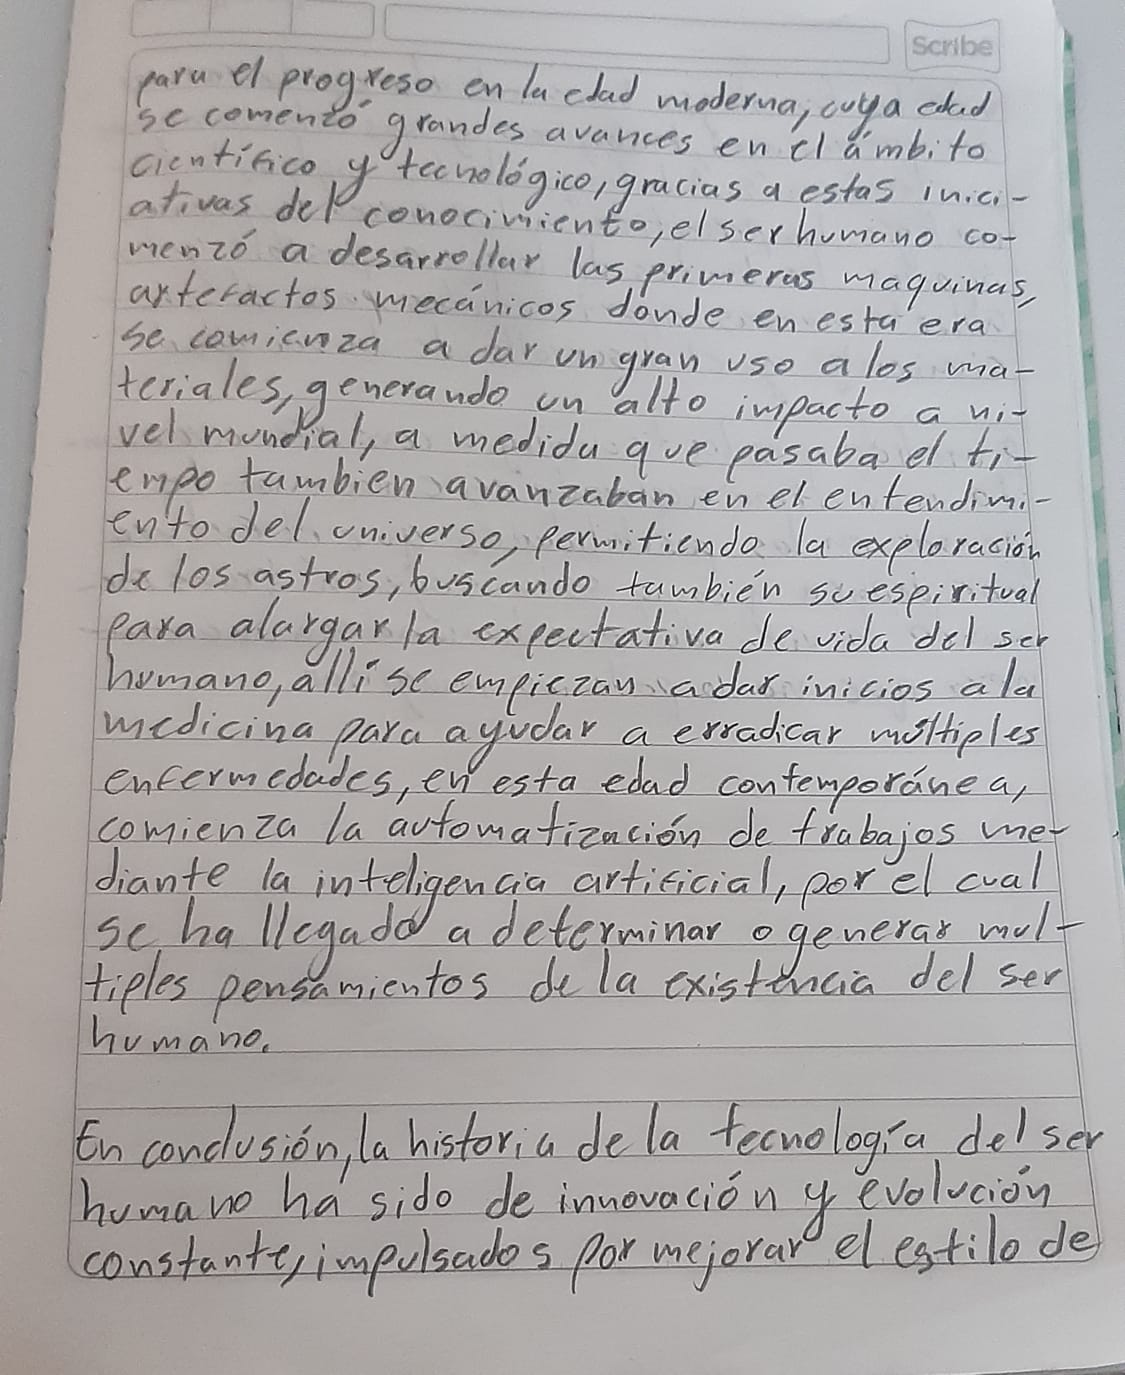 Scribe
para el progreso en la edad moderna, cuya edad
se comentó grandes avances en el ámbito
científico y tecnológico, gracias a estas inici-
ativas del conocimiento, el ser humano co-
menzó a desarrollar las primeras maquinas,
artefactos mecánicos donde en esta era
se comienza a dar un gran uso a los ma-
teriales, generando un alto impacto a ni-
vel mundial, a medida que pasaba el ti-
empo tambien avanzaban en el entendimi-
ento del universo, permitiendo la exploración
de los astros, buscando también su espiritual
para alargar la expectativa de vida del ser
humano, allí se empiezan a dar inicios a la
medicina para ayudar a erradicar múltiples
enfermedades, en esta edad contemporánea,
comienza la automatización de trabajos me-
diante la inteligencia artificial, por el cual
se ha llegado a determinar o generar mul-
tiples pensamientos de la existencia del ser
humano.
En conclusión, la historia de la tecnología del ser
humano ha sido de innovación y evolución
constante, impulsados por mejorar el estilo de